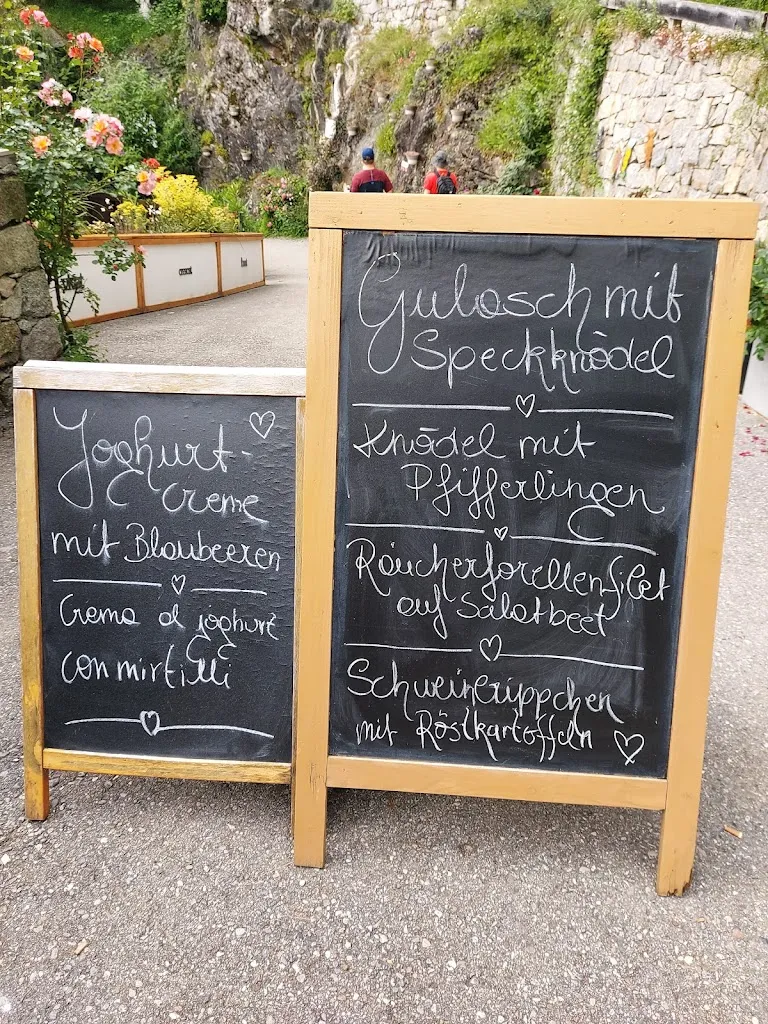 Joghurt-
creme
mit Blaubeeren
Crema al yoghurt
con mirtilli
Gulasch mit
Speckknödel
Knödel mit
Pfifferlingen
Räucherforellenfilet
auf Salatbeet
Schweinerippchen
mit Röstkartoffeln